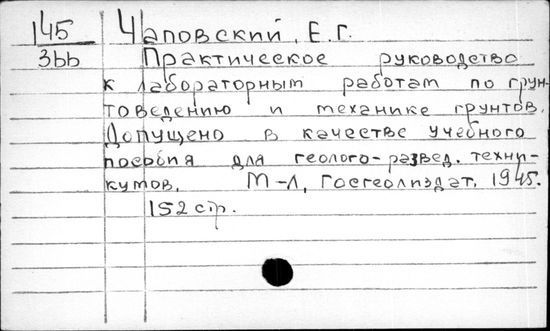 145 Чаповский, Е.Г.
3bb Практическое руководство
к лабораторным работам по грун-
товедению и механике грунтов.
Допущено в качестве учебного
пособия для геолого-развед. техни-
кумов. М-Л, Госгеолиздат. 1945.
152 стр.